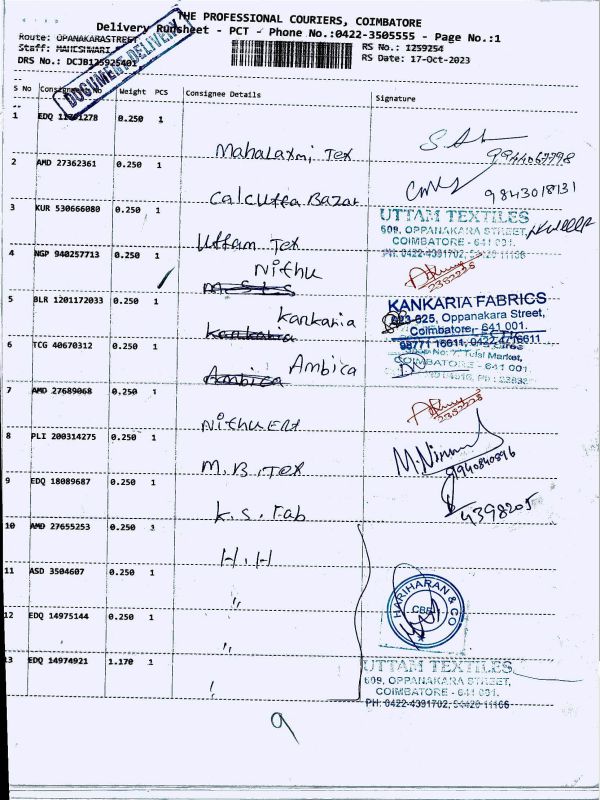 THE PROFESSIONAL COURIERS, COIMBATORE
Delivery Runsheet - PCT - Phone No.:0422-3505555 - Page No.:1
Route: OPANAKARASTREET
Staff: MAHESHWARI
DRS No.: DCJB125925401
RS No.: 1259254
RS Date: 17-Oct-2023
DOCUMENT DELIVERY
S No Consignment No Weight PCS Consignee Details Signature
1 EDQ 0.250 1 Mahalaxmi Tex
9944067798
2 AMD 27362361 0.250 1 Calcutta Bazar
9843018131
3 KUR 530666080 0.250 1 Uttam Tex
UTTAM TEXTILES
609, OPPANAKARA STREET,
COIMBATORE - 641 001.
PH: 0422-4391702, 94420-11166
4 NGP 940257713 0.250 1 Nithu
2382228
5 BLR 1201172033 0.250 1 Kankaria
Kankaria
KANKARIA FABRICS
623-625, Oppanakara Street,
Coimbatore - 641 001.
98771 16611, 0422-4716611
6 TCG 40670312 0.250 1 Ambica
Ambica
Tulsi Market,
COIMBATORE - 641 001.
7 AMD 27689068 0.250 1 Nithu Ent
2382228
8 PLI 200314275 0.250 1 M.B. Tex
M.Nirmal
9940840896
9 EDQ 18089687 0.250 1 K.S. Fab
4398205
10 AMD 27655253 0.250 1 H.H
11 ASD 3504607 0.250 1 "
HARIHARAN & CO
CBE
12 EDQ 14975144 0.250 1 "
13 EDQ 14974921 1.170 1
UTTAM TEXTILES
609, OPPANAKARA STREET,
COIMBATORE - 641 001.
PH: 0422-4391702, 94420-11166
9